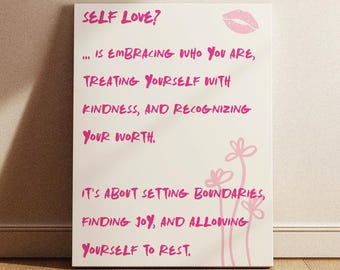 SELF LOVE?
... IS EMBRACING WHO YOU ARE,
TREATING YOURSELF WITH
KINDNESS, AND RECOGNIZING
YOUR WORTH.
IT'S ABOUT SETTING BOUNDARIES,
FINDING JOY, AND ALLOWING
YOURSELF TO REST.